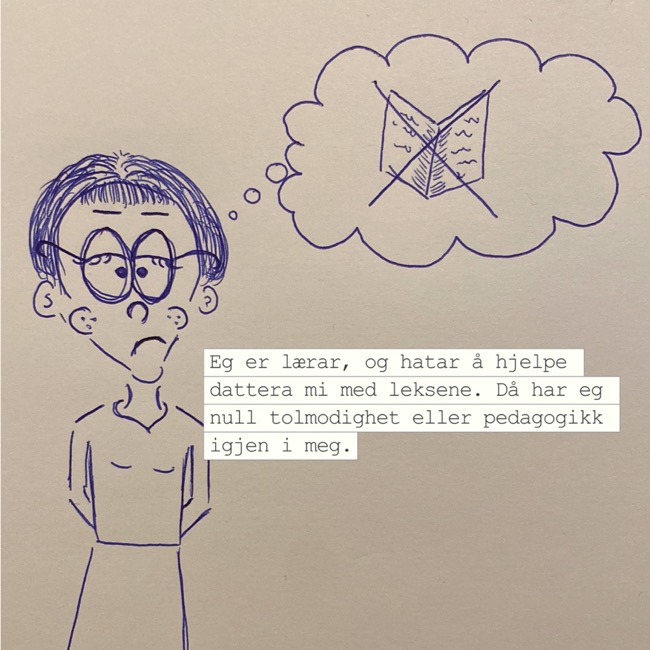 Eg er lærar, og hatar å hjelpe
dattera mi med leksene. Då har eg
null tolmodighet eller pedagogikk
igjen i meg.